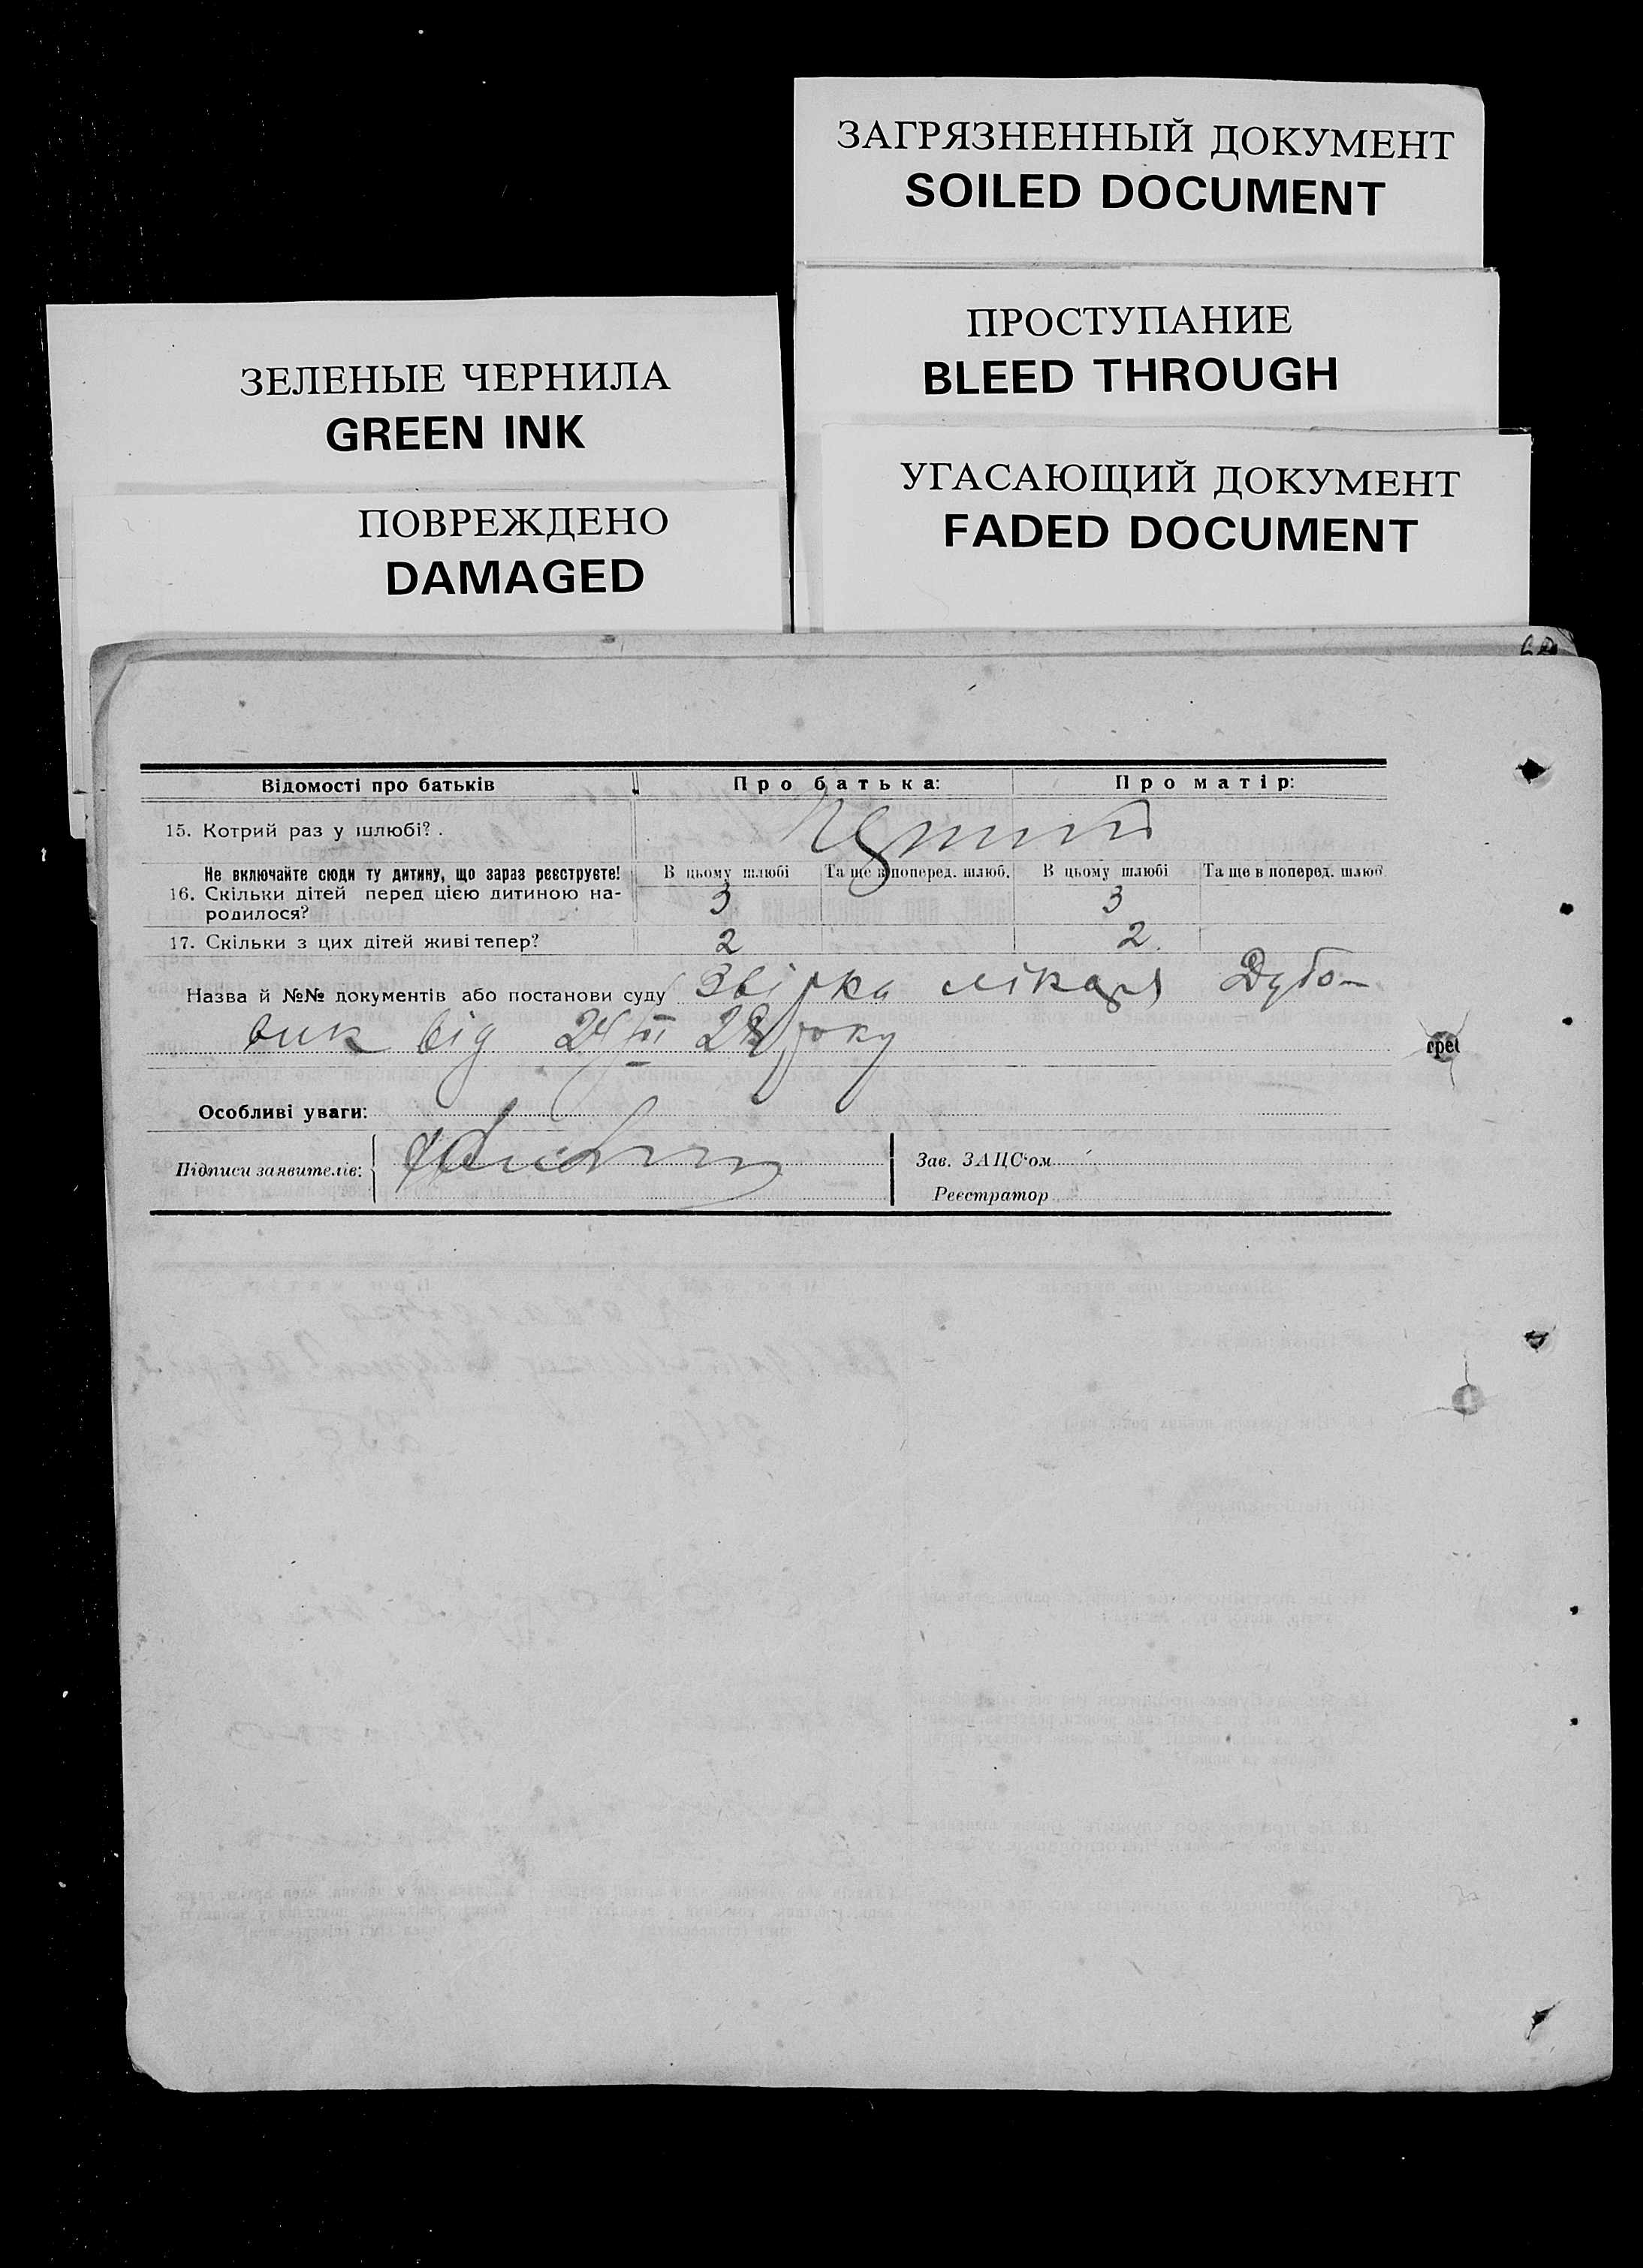 ЗАГРЯЗНЕННЫЙ ДОКУМЕНТ
SOILED DOCUMENT
ПРОСТУПАНИЕ
BLEED THROUGH
УГАСАЮЩИЙ ДОКУМЕНТ
FADED DOCUMENT
ЗЕЛЕНЫЕ ЧЕРНИЛА
GREEN INK
ПОВРЕЖДЕНО
DAMAGED
Відомості про батьків Про батька: Про матір:
15. Котрий раз у шлюбі? .
Не включайте сюди ту дитину, що зараз реєструєте! В цьому шлюбі Та ще в поперед. шлюб. В цьому шлюбі Та ще в поперед. шлюб
16. Скільки дітей перед цією дитиною на-
родилося? 3 3
17. Скільки з цих дітей живі тепер? 2 2.
Назва й №№ документів або постанови суду лікаря Дубо-
вик від 28 року
Особливі уваги:
Підписи заявителів: Зав. ЗАЦС'ом
Реєстратор